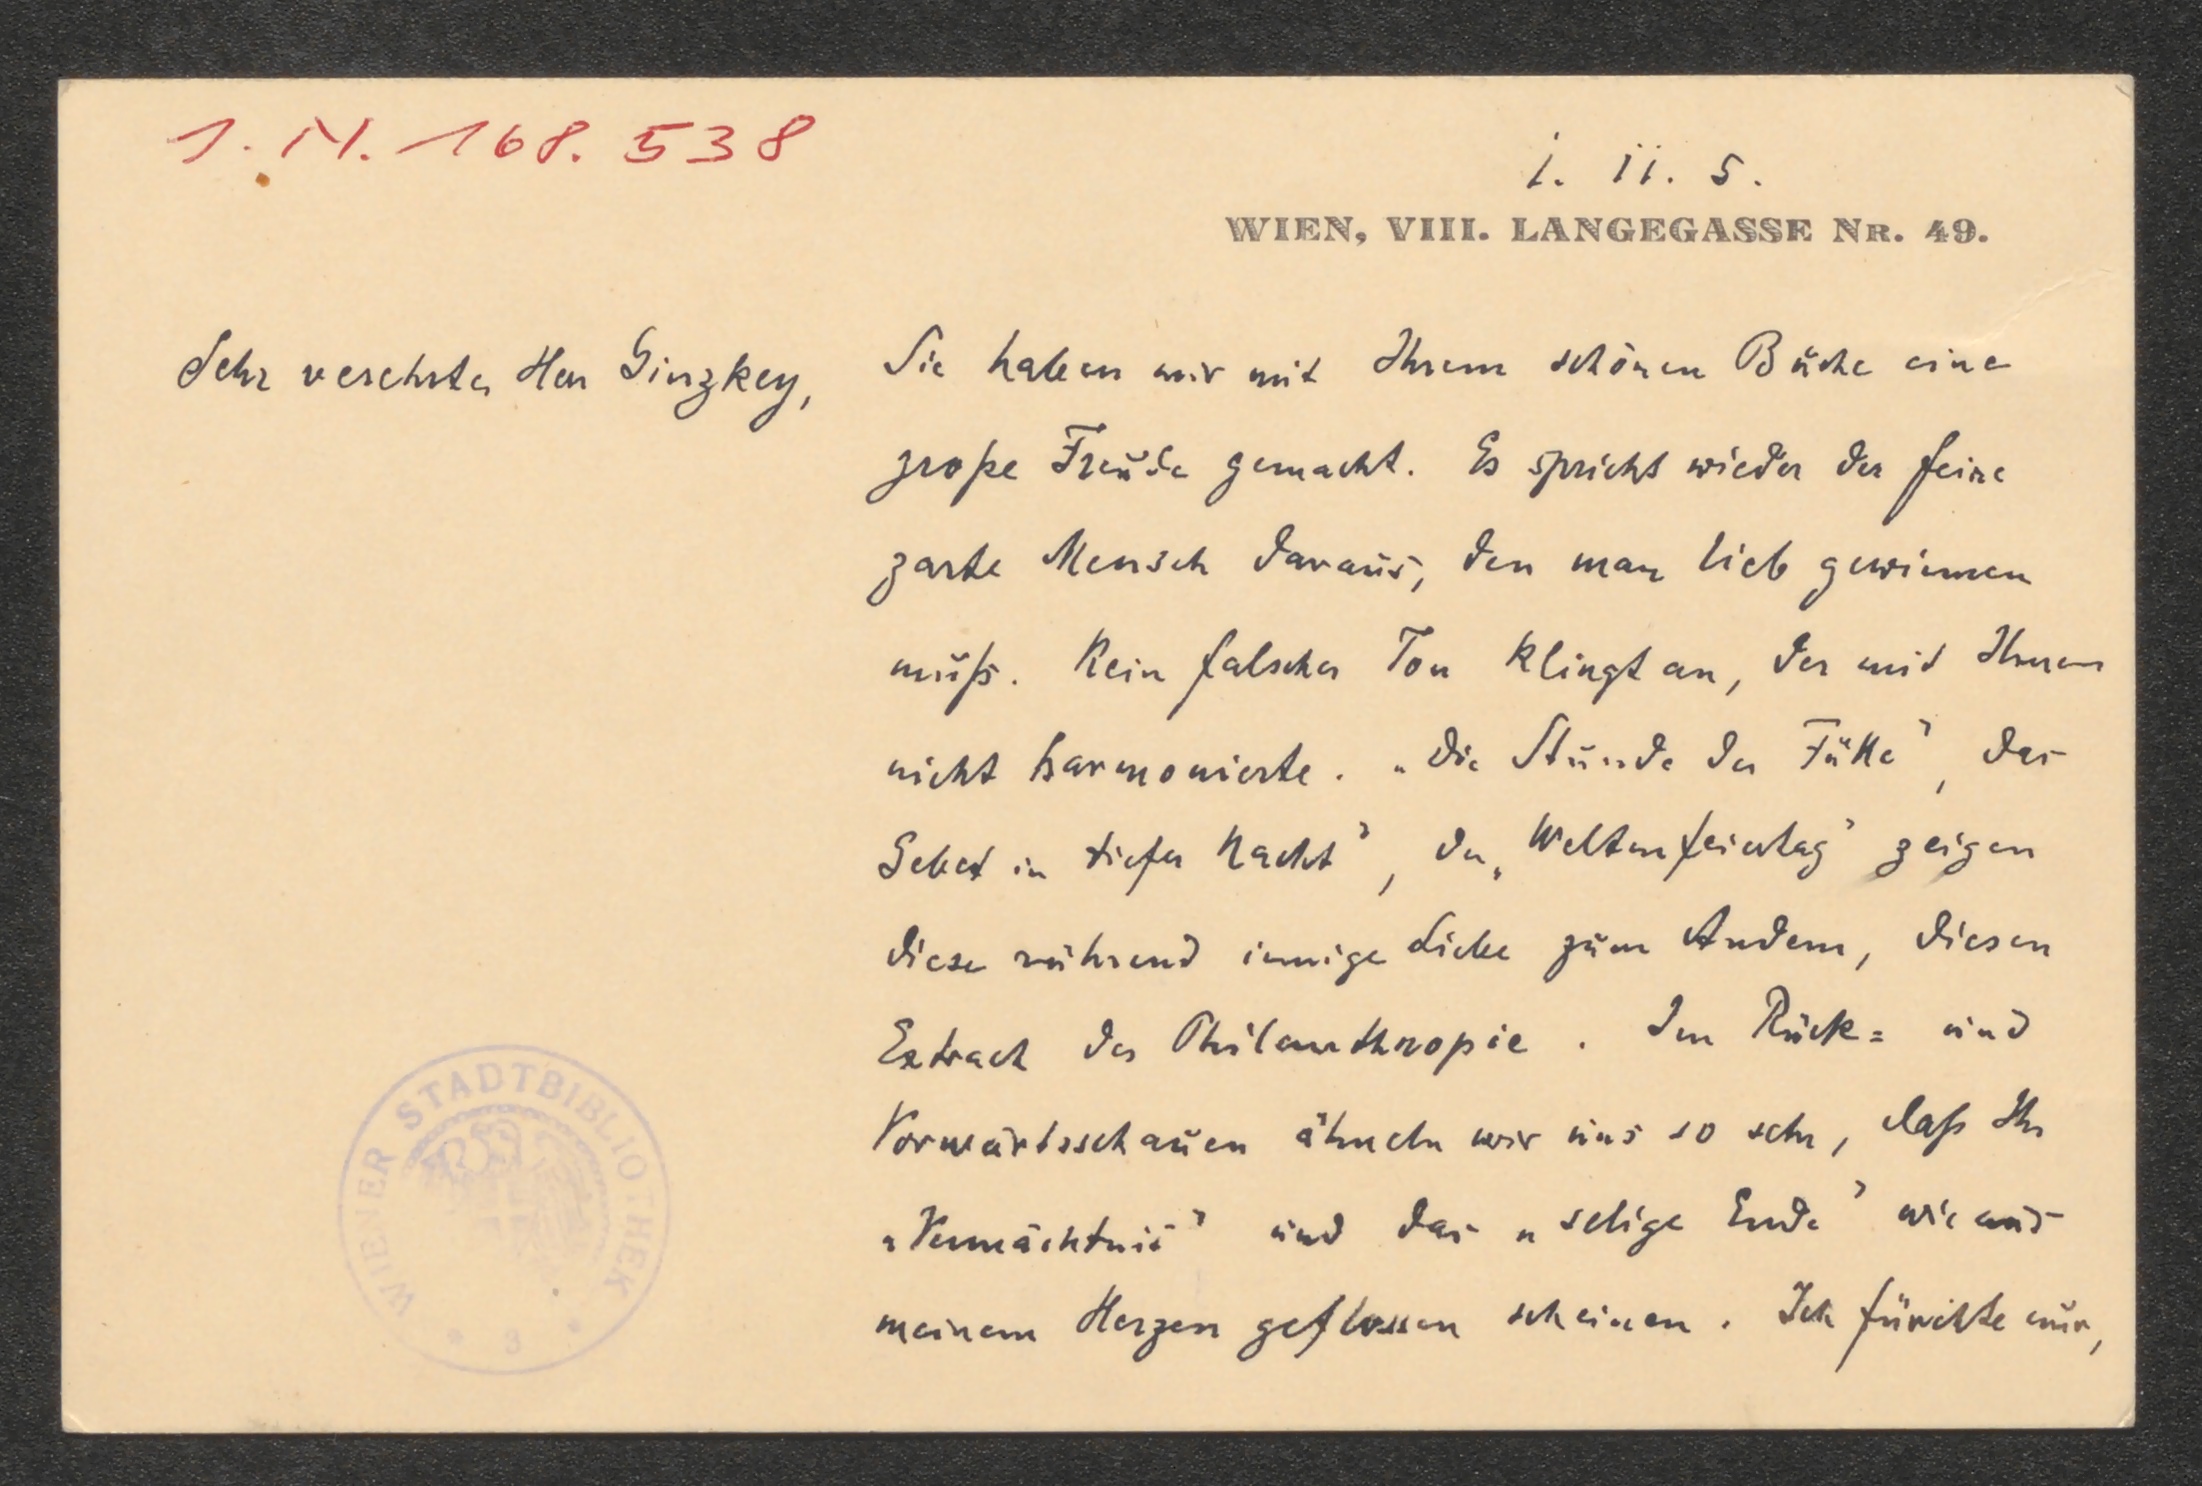 I. N. 168.538
1. 11. 5.
WIEN, VIII. LANGEGASSE NR. 49.
Sehr verehrter Herr Ginzkey,
Sie haben mir mit Ihrem schönen Buche eine
große Freude gemacht. Es spricht wieder der feine
zarte Mensch daraus, den man lieb gewinnen
muß. Kein falscher Ton klingt an, der mit Ihnen
nicht harmonierte. „Die Stunde der Fülle", das
Gebet in tiefer Nacht", der „Weltenfeiertag" zeigen
diese rührend innige Liebe zum Andern, diesen
Extract der Philanthropie. Im Rück= und
Vorwärtsschauen ähneln wir uns so sehr, daß Ihr
„Vermächtnis" und das „selige Ende" wie aus
meinem Herzen geflossen scheinen. Ich fürchte nur,
WIENER STADTBIBLIOTHEK
* 3 *